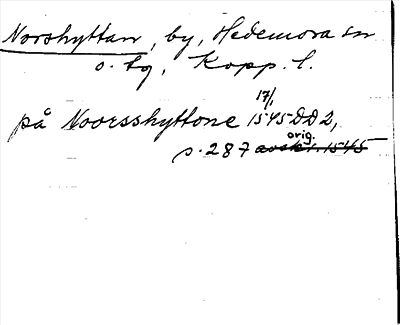 Norshyttan, by, Hedemora sn
o. tg, Kopp. l.
på Noorsshyttone 17/1 1545 DD2,
s. 287 orig. avskr. 1545